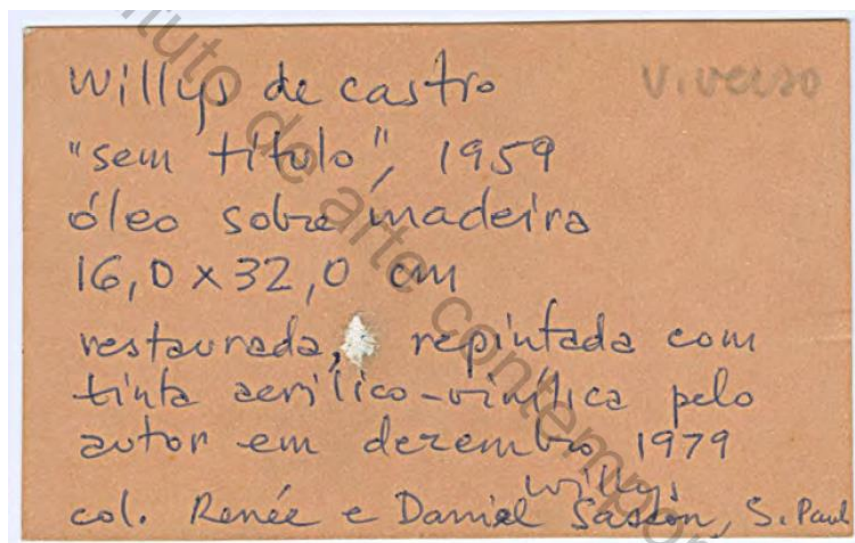 willys de castro
viverso
"sem título", 1959
óleo sobre madeira
16,0 x 32,0 cm
restaurada, repintada com
tinta acrílico-vinílica pelo
autor em dezembro 1979
willys
col. Renée e Daniel Sasson, S. Paul
instituto de arte contempor